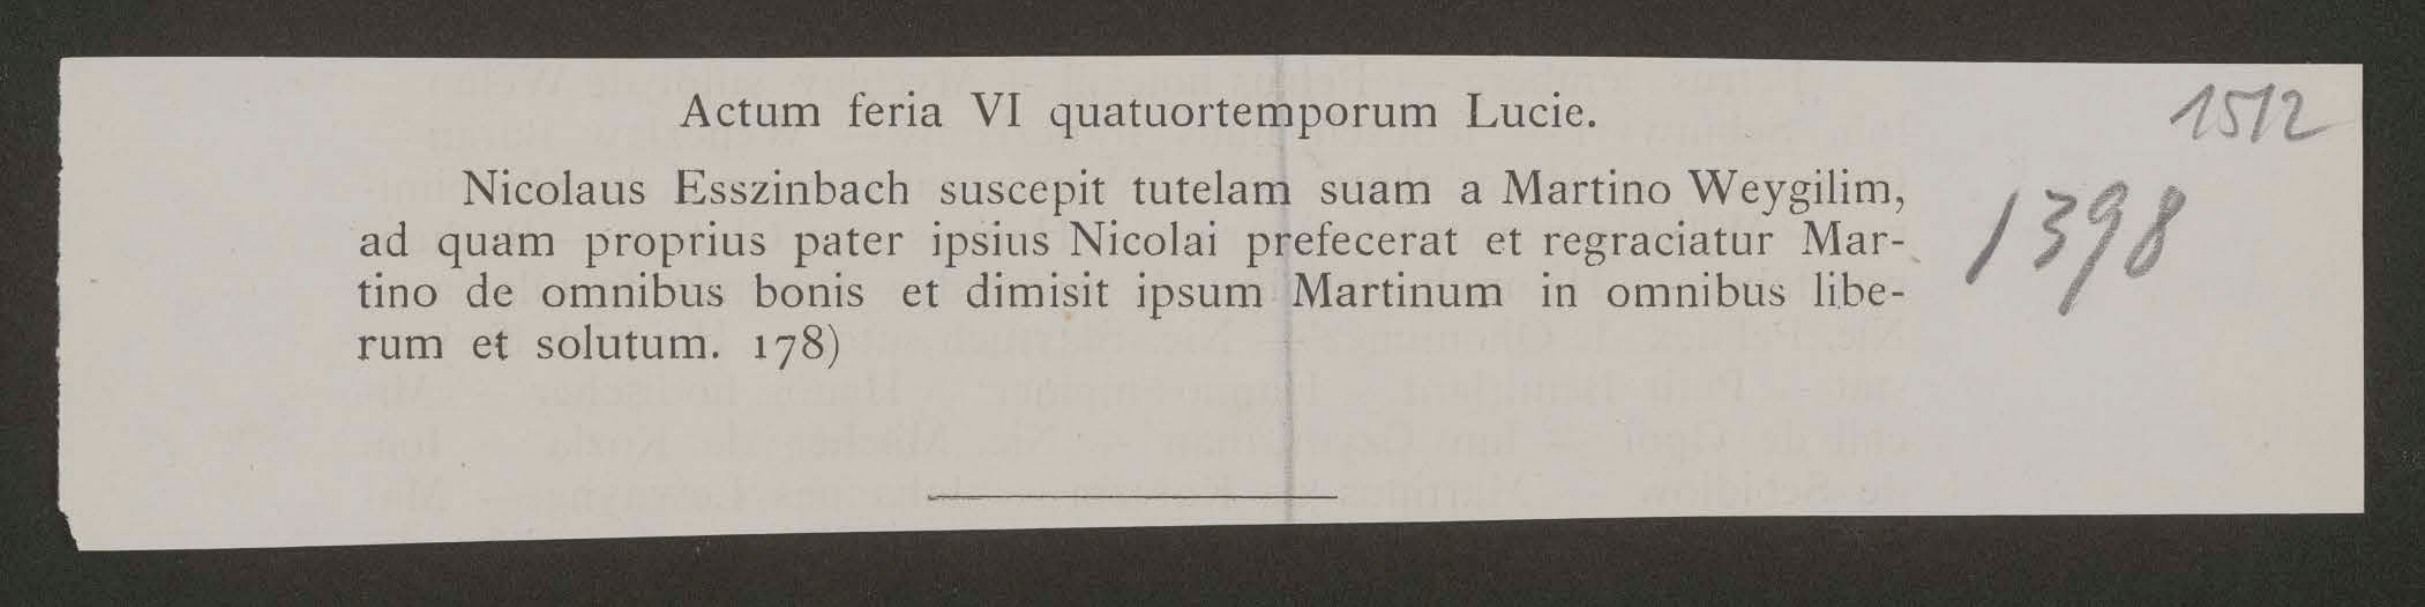 Actum feria VI quatuortemporum Lucie.
1512
Nicolaus Esszinbach suscepit tutelam suam a Martino Weygilim,
ad quam proprius pater ipsius Nicolai prefecerat et regraciatur Mar-
tino de omnibus bonis et dimisit ipsum Martinum in omnibus libe-
rum et solutum. 178)
1398